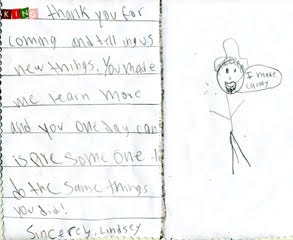 KING
thank you for
coming and telling us
new things. You made
me learn more
and you one day can
is pire some one to
do the same things
you did!
Sincercy, Lindsey
I make
candy